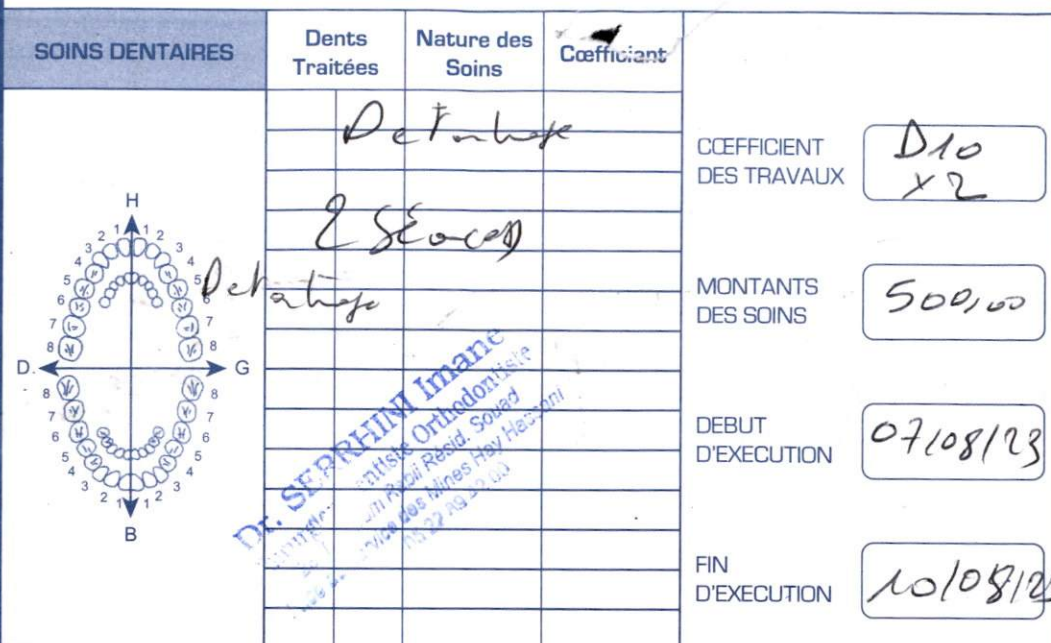 SOINS DENTAIRES
Dents Traitées
Nature des Soins
Cœfficiant
Detartrage
2 Séances
Detartrage
H
D
G
B
1 2 3 4 5 6 7 8
1 2 3 4 5 6 7 8
8 7 6 5 4 3 2 1
8 7 6 5 4 3 2 1
Dr. SERRHINI Imane
Orthodontiste
Resid. Souad
des Mines Hay Hassani
CŒFFICIENT DES TRAVAUX
D10
x2
MONTANTS DES SOINS
500,00
DEBUT D'EXECUTION
07/08/23
FIN D'EXECUTION
10/08/2